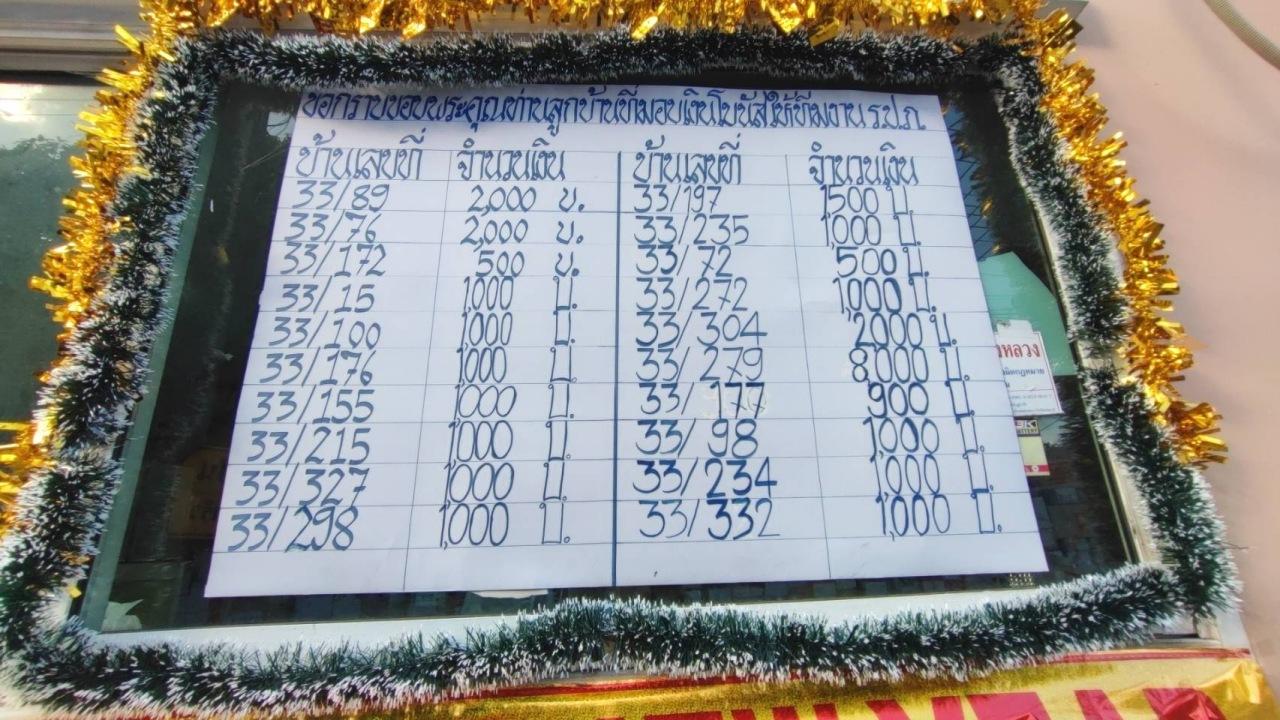 ขอกราบขอบพระคุณท่านลูกบ้านที่มอบเงินโบนัสให้ทีมงาน รปภ.
บ้านเลขที่ จำนวนเงิน บ้านเลขที่ จำนวนเงิน
33/89 2,000 บ. 33/197 1500 บ.
33/76 2,000 บ. 33/235 1000 บ.
33/172 500 บ. 33/72 500 บ.
33/15 1000 บ. 33/272 1,000 บ.
33/100 1000 บ. 33/304 2000 บ.
33/176 1000 บ. 33/279 8000 บ.
33/155 1000 บ. 33/177 900 บ.
33/215 1,000 บ. 33/98 1,000 บ.
33/327 1,000 บ. 33/234 1,000 บ.
33/298 1,000 บ. 33/332 1,000 บ.
หลวง